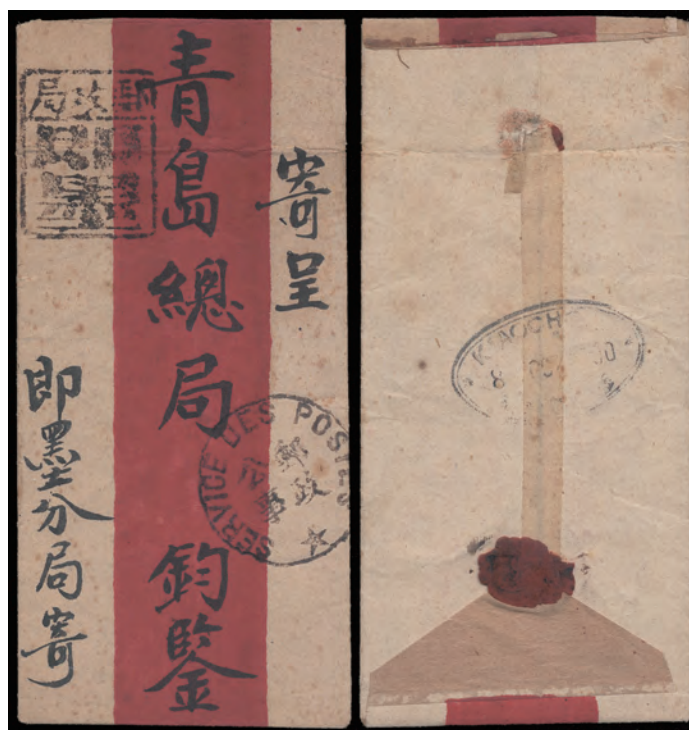 寄呈
青島總局 鈞鑒
即墨分局寄
SERVICE DES POSTES
郵政
公事
KIAOCH
8